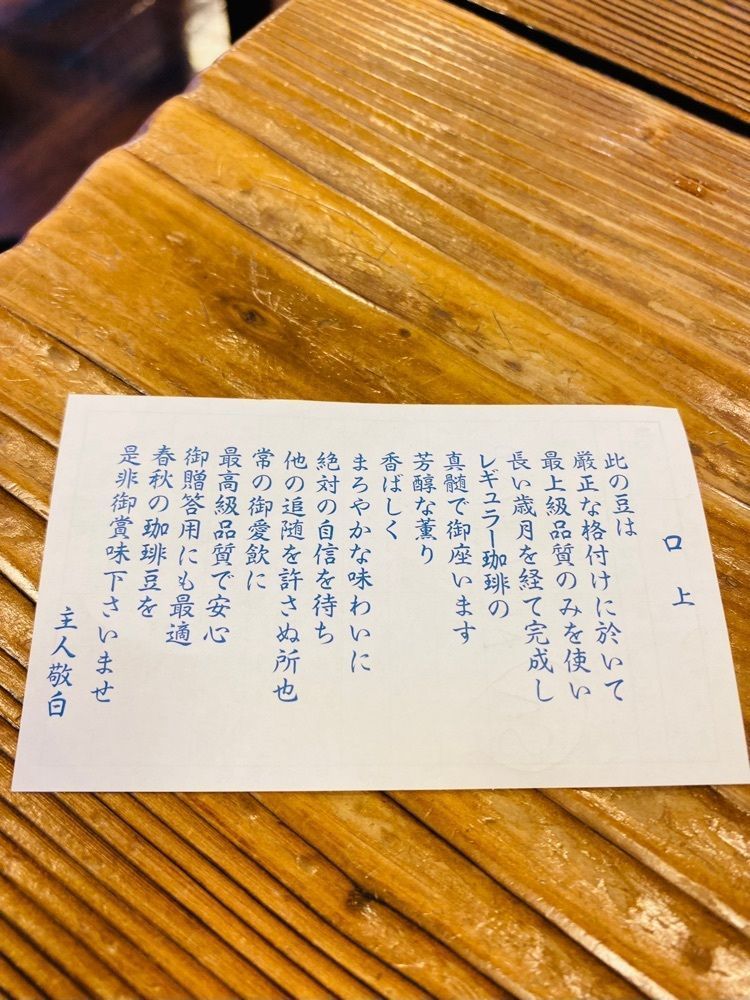 口上
此の豆は
厳正な格付けに於いて
最上級品質のみを使い
長い歳月を経て完成し
レギュラー珈琲の
真髄で御座います
芳醇な薫り
香ばしく
まろやかな味わいに
絶対の自信を待ち
他の追随を許さぬ所也
常の御愛飲に
最高級品質で安心
御贈答用にも最適
春秋の珈琲豆を
是非御賞味下さいませ
主人敬白